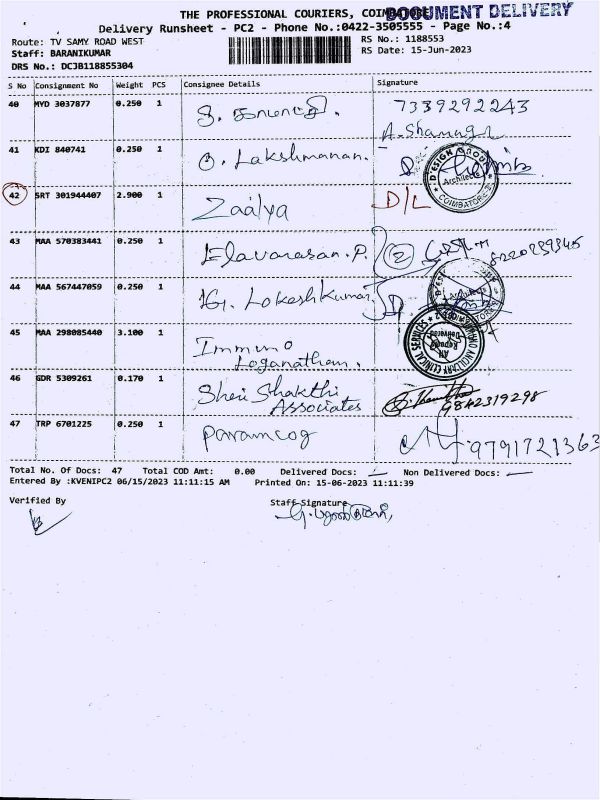 THE PROFESSIONAL COURIERS, COIMBATORE
DOCUMENT DELIVERY
Delivery Runsheet - PC2 - Phone No.:0422-3505555 - Page No.:4
Route: TV SAMY ROAD WEST
RS No.: 1188553
Staff: BARANIKUMAR
RS Date: 15-Jun-2023
DRS No.: DCJB118855304
S No Consignment No Weight PCS Consignee Details Signature
40 MYD 3037877 0.250 1 7339292243
41 KDI 840741 0.250 1 O. Lakshmanan.
D'ESIGN GROUP Architects COIMBATORE
42 SRT 301944407 2.900 1 Zaalya D/L
43 MAA 570383441 0.250 1 Elavarasan.P.
44 MAA 567447059 0.250 1 Lokeshkumar
Architects
45 MAA 298085440 3.100 1 Immuno
Loganathan.
ANCILLARY CLINICAL SERVICES
46 GDR 5309261 0.170 1 Shri Shakthi
Associates 9842319298
47 TRP 6701225 0.250 1 Paramcog 9791721363
Total No. Of Docs: 47 Total COD Amt: 0.00 Delivered Docs: Non Delivered Docs:
Entered By :KVENIPC2 06/15/2023 11:11:15 AM Printed On: 15-06-2023 11:11:39
Verified By Staff Signature